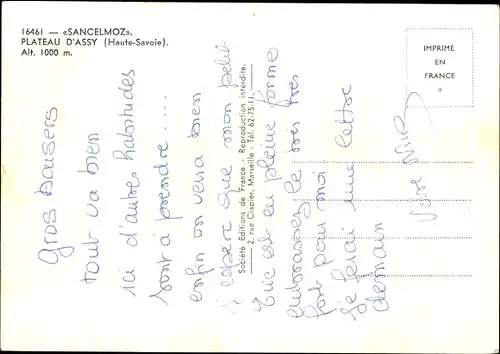 16461 — «SANCELMOZ».
PLATEAU D'ASSY (Haute-Savoie).
Alt. 1000 m.
IMPRIMÉ
EN
FRANCE
Société Editions de France - Reproduction interdite.
2, rue Clapier, Marseille - Tél. 62-75-11.
Gros baisers
tout va bien
ici d'autres habitudes
sont à prendre.....
enfin on verra bien
J'espère que mon petit
Eric est en pleine forme
embrassez le très très
fort pour moi
Je ferai une lettre
demain